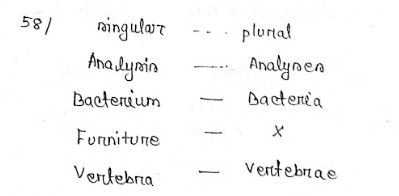 58/ singular --- plural
Analysis —— Analyses
Bacterium — Bacteria
Furniture — x
Vertebra — Vertebrae